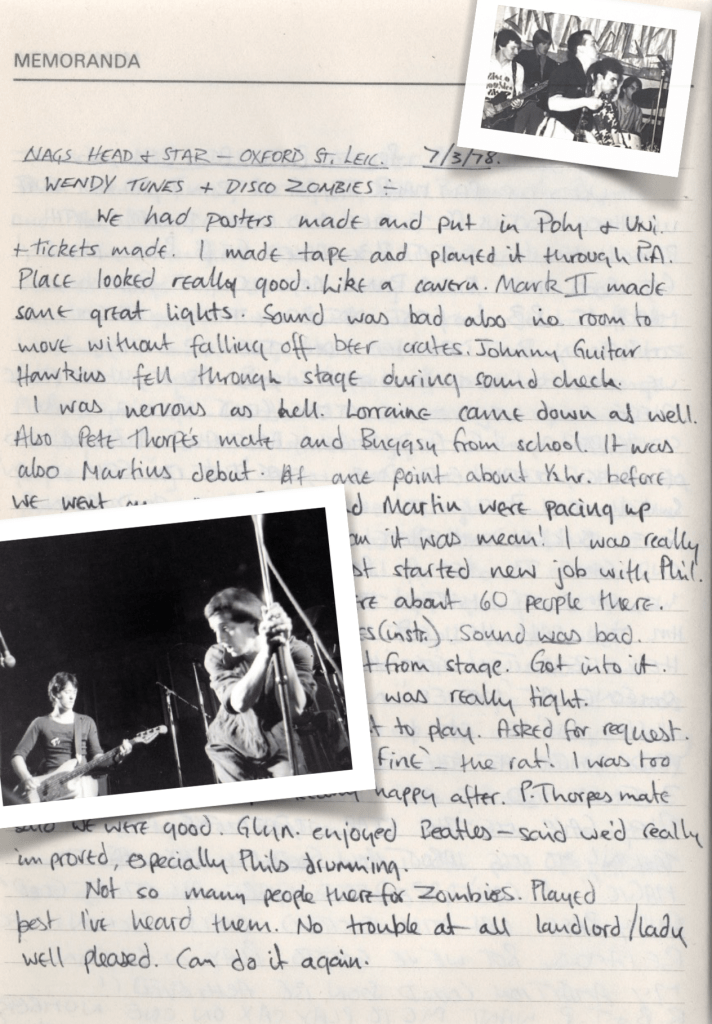 MEMORANDA
NAGS HEAD & STAR – OXFORD ST. LEIC. 7/3/78.
WENDY TUNES + DISCO ZOMBIES :–
We had posters made and put in Poly & Uni.
+ tickets made. I made tape and played it through P.A.
Place looked really good. Like a cavern. Mark II made
some great lights. Sound was bad also no room to
move without falling off beer crates. Johnny Guitar
Hawkins fell through stage during sound check.
I was nervous as hell. Lorraine came down as well.
Also Pete Thorpe's mate and Buggsy from school. It was
also Martins debut. At one point about ½hr. before
we went Martin were pacing up
it was mean! I was really
started new job with Phil.
about 60 people there.
(instr.) Sound was bad.
from stage. Got into it.
was really tight.
to play. Asked for request.
Fine' – the rat! I was too
happy after. P. Thorpes mate
said we were good. Glyn. enjoyed Beatles – said we'd really
improved, especially Phils drumming.
Not so many people there for Zombies. Played
best I've heard them. No trouble at all landlord/lady
well pleased. Can do it again.